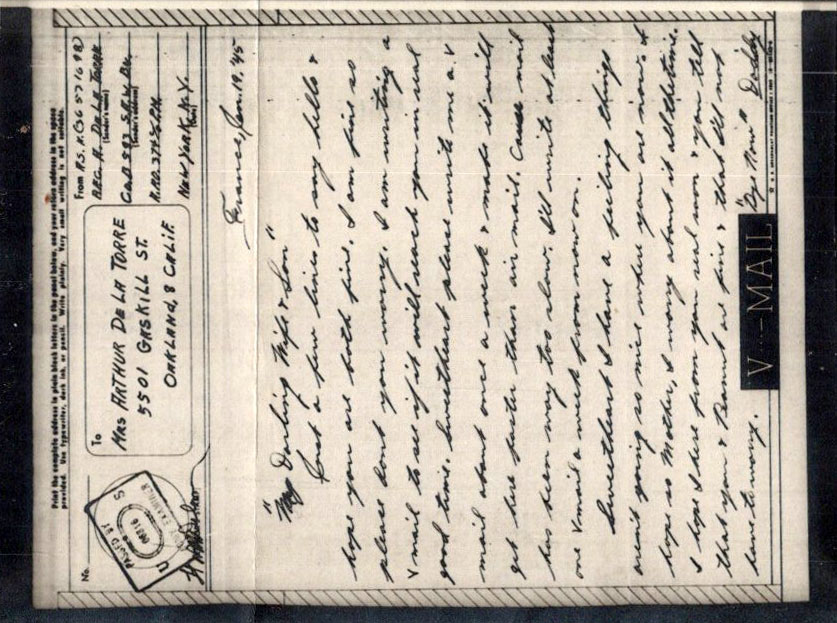 Print the complete address in plain block letters in the panel below, and your return address in the space
provided. Use typewriter, dark ink, or pencil. Write plainly. Very small writing is not suitable.
No.
PASSED BY
U S
ARMY EXAMINER
To
MRS ARTHUR DE LA TORRE
5501 GASKILL ST.
OAKLAND, 8 CALIF.
From
P.F.C. A. DE LA TORRE
(Sender's name)
(Sender's address)
NEW YORK, N.Y.
(Date)
France, Jan. 19, '45
"My Darling Wife & Son"
Just a few lines to say hello &
hope you are both fine. I am fine so
please dont you worry. I am writing a
V mail to see if it will reach you in real
good time. Sweetheart please write me a V
mail about once a week & maybe it will
get here faster than air mail. Cause mail
has been way too slow. I'll write at least
one V mail a week from now on.
Sweetheart I have a feeling things
aren't going so nice where you are now. I
hope so Mother, I worry about it all the time.
I hope I hear from you real soon & you tell
that you & Peanut are fine & that I'll not
have to worry. "Bye Now" Daddy
V---MAIL